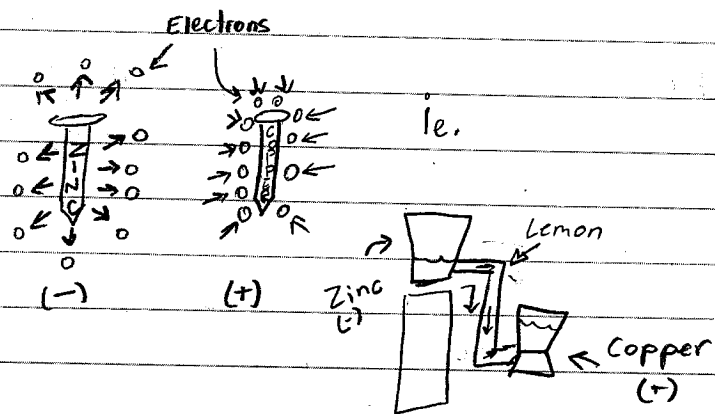 Electrons
ZINC
COPPER
(-)
(+)
ie.
Lemon
Zinc
(-)
Copper
(+)